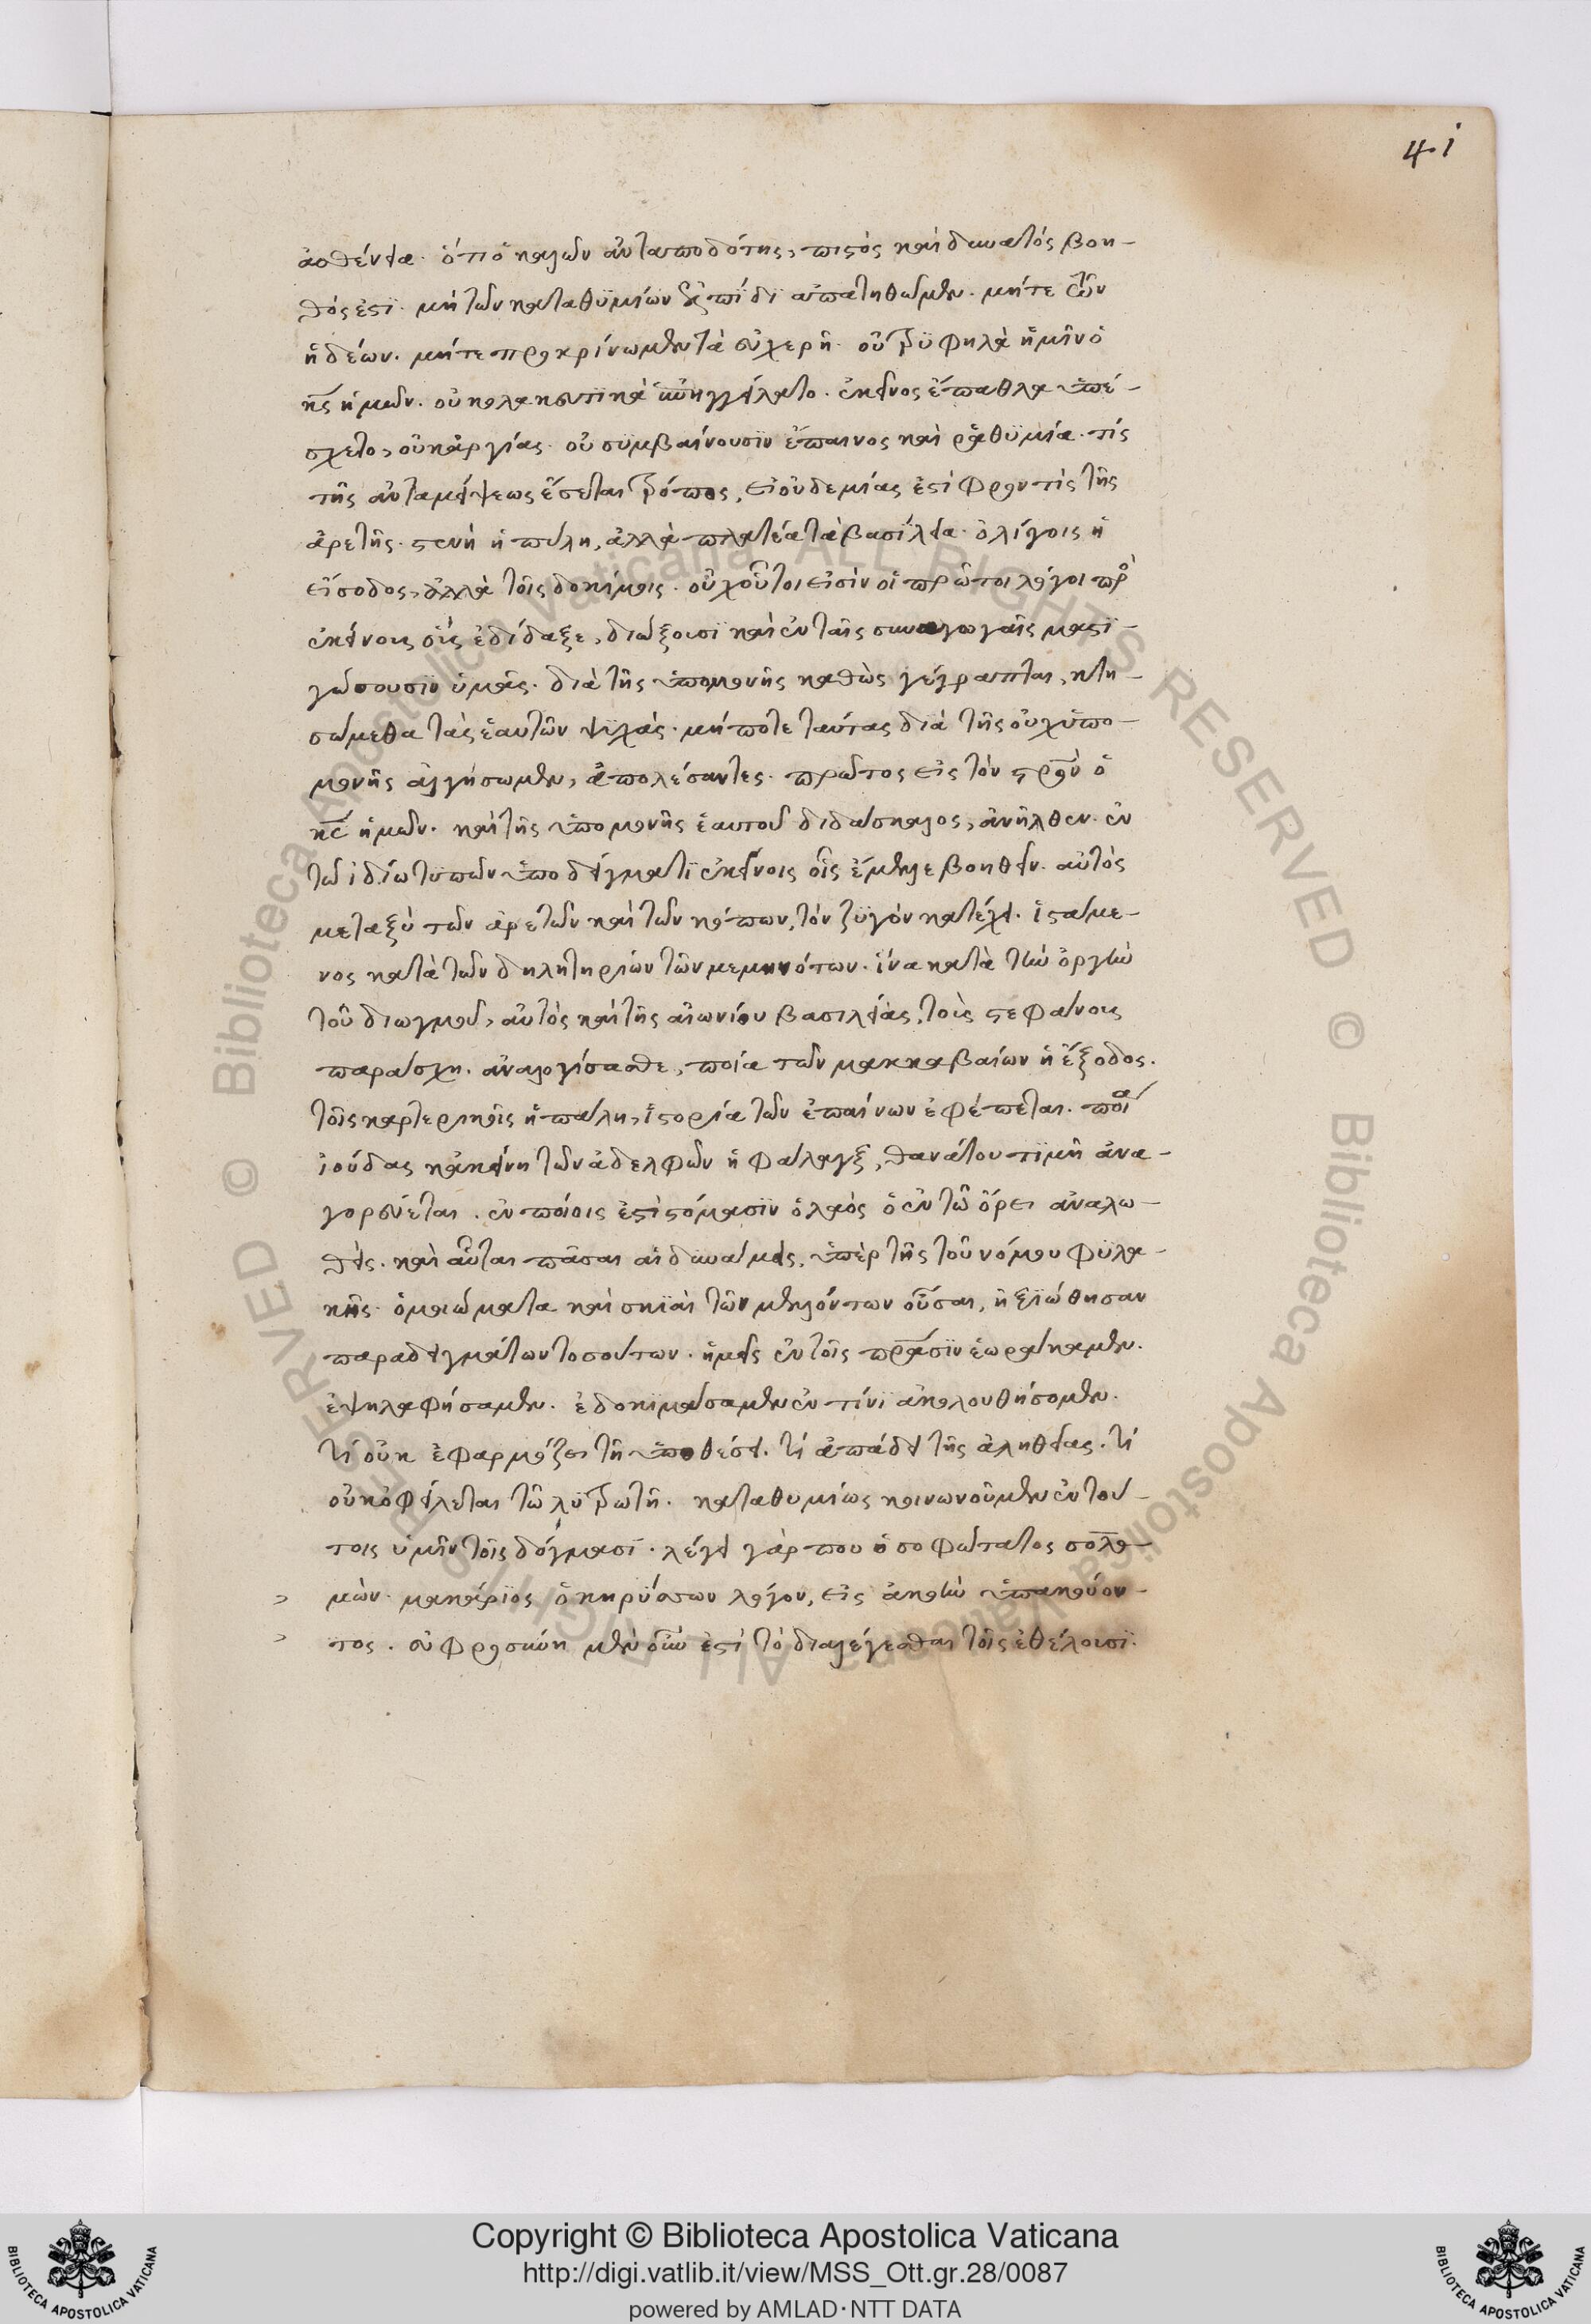 41
ἀσθένεια. ὅτι ὁ καλῶν ἀνταποδότης, πιστὸς καὶ δυνατὸς βοη-
θός ἐστι. μὴ τῶν καταθυμίων ἐλπίδι ἀπατηθῶμεν. μήτε τῶν
ἡδέων. μήτε προκρίνωμεν τὰ εὐχερῆ. οὐ τρυφηλὰ ἡμῖν ὁ
κς ἡμῶν. οὐ κολακευτικὰ ἐπηγγείλατο. ἐκεῖνος ἔπαθλα ὑπέ-
σχετο, οὐκ ἀργίας. οὐ συμβαίνουσιν ἔπαινος καὶ ῥαθυμία. τίς
τῆς ἀνταμείψεως ἔσεται τρόπος, εἰ οὐδεμίας ἐστὶ φροντὶς τῆς
ἀρετῆς. στενὴ ἡ πύλη, ἀλλὰ πλατέα τὰ βασίλεια. ὀλίγοις ἡ
εἴσοδος, ἀλλὰ τοῖς δοκίμοις. οὐχ οὗτοι εἰσὶν οἱ πρῶτοι λόγοι πρὸ
ἐκείνοις οἷς ἐδίδαξε, διώξουσι καὶ ἐν ταῖς συναγωγαῖς μαστι-
γώσουσιν ὑμᾶς. διὰ τῆς ὑπομονῆς καθὼς γέγραπται, κτη-
σώμεθα τὰς ἑαυτῶν ψυχάς. μήποτε ταύτας διὰ τῆς οὐχ ὑπο-
μονῆς ἀλγήσωμεν, ἀπολέσαντες. πρῶτος εἰς τὸν στρον ὁ
κς ἡμῶν. καὶ τῆς ὑπομονῆς ἑαυτοῦ διδάσκαλος, ἀνῆλθεν. ἐν
τῷ ἰδίῳ τυπῶν ὑποδείγματι ἐκείνοις οἷς ἔμελλε βοηθεῖν. αὐτὸς
μεταξὺ τῶν ἀρετῶν καὶ τῶν κόπων, τὸν ζυγὸν κατέχει. ἱστάμε-
νος κατὰ τῶν δηλητηρίων τῶν μεμηνότων. ἵνα κατὰ τὴν ὀργὴν
τοῦ διωγμοῦ, αὐτὸς καὶ τῆς αἰωνίου βασιλείας, τοὺς στεφάνους
παράσχη. ἀναλογίσασθε, ποία τῶν μακκαβαίων ἡ ἔξοδος.
τοῖς καρτερικοῖς ἡ πάλη, ἱστορία τῶν ἐπαίνων ἐφέπεται. ποία
ἰούδας κἀκείνη τῶν ἀδελφῶν ἡ φάλαγξ, θανάτου τιμῇ ἀνα-
γορεύεται. ἐν ποίοις ἐστὶ στόμασιν ὁ λαὸς ὁ ἐν τῷ ὄρει ἀναλω-
θείς. καὶ αὗται πᾶσαι αἱ δυνάμεις, ὑπὲρ τῆς τοῦ νόμου φυλα-
κῆς. ὁμοιώματα καὶ σκιαὶ τῶν μελλόντων οὖσαι, ἠξιώθησαν
παραδειγμάτων τοσούτων. ἡμεῖς ἐν τοῖς πρασιν ἑωράκαμεν.
ἐψηλαφήσαμεν. ἐδοκιμάσαμεν ἐν τίνι ἀκολουθήσομεν.
τί οὐκ ἐφαρμόζει τῇ ὑποθέσει. τί ἀπάδει τῆς ἀληθείας. τί
οὐκ ὀφείλεται τῷ λυτρωτῇ. καταθυμίως κοινωνοῦμεν ἐν τού-
τοις ὑμῖν τοῖς δόγμασι. λέγει γάρ που ὁ σοφώτατος σολο-
μών. μακάριος ὁ κηρύσσων λόγον, εἰς ἀκοὴν ὑπακούον-
τος. εὐφροσύνη μὲν οὖν ἐστὶ τὸ διαλέγεσθαι τοῖς ἐθέλουσι.
Copyright © Biblioteca Apostolica Vaticana
http://digi.vatlib.it/view/MSS_Ott.gr.28/0087
powered by AMLAD·NTT DATA